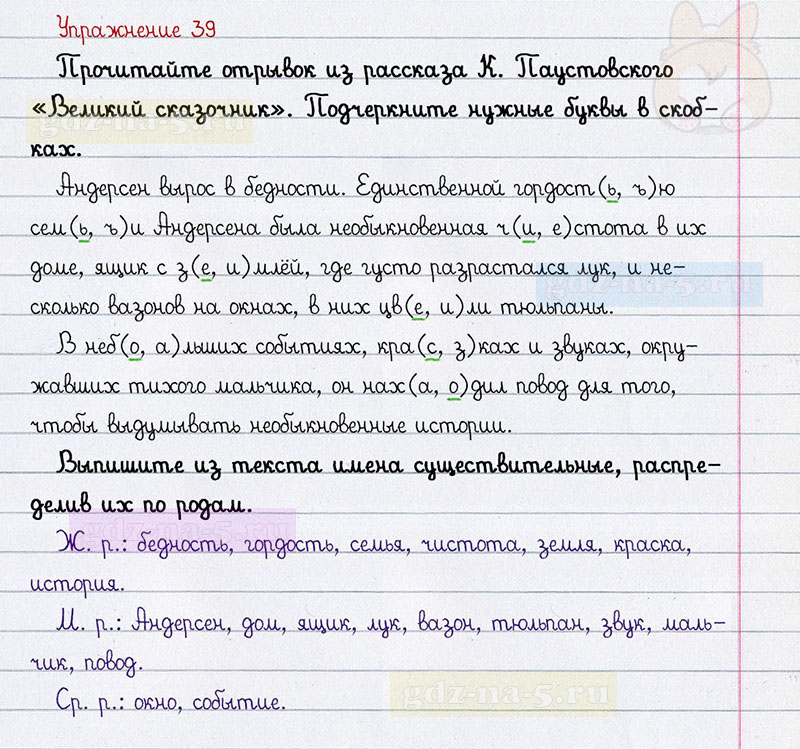 Упражнение 39
Прочитайте отрывок из рассказа К. Паустовского
«Великий сказочник». Подчеркните нужные буквы в скоб-
ках.
Андерсен вырос в бедности. Единственной гордост(ь, ъ)ю
сем(ь, ъ)и Андерсена была необыкновенная ч(и, е)стота в их
доме, ящик с з(е, и)млёй, где густо разрастался лук, и не-
сколько вазонов на окнах, в них цв(е, и)ли тюльпаны.
В неб(о, а)льших событиях, кра(с, з)ках и звуках, окру-
жавших тихого мальчика, он нах(а, о)дил повод для того,
чтобы выдумывать необыкновенные истории.
Выпишите из текста имена существительные, распре-
делив их по родам.
Ж. р.: бедность, гордость, семья, чистота, земля, краска,
история.
М. р.: Андерсен, дом, ящик, лук, вазон, тюльпан, звук, маль-
чик, повод.
Ср. р.: окно, событие.
gdz-na-5.ru
gdz-na-5.ru
gdz-na-5.ru
gdz-na-5.ru